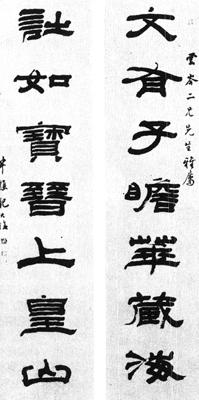 雲岑二兄先生雅屬
文有子瞻華藏海
詩如寶晉上皇山